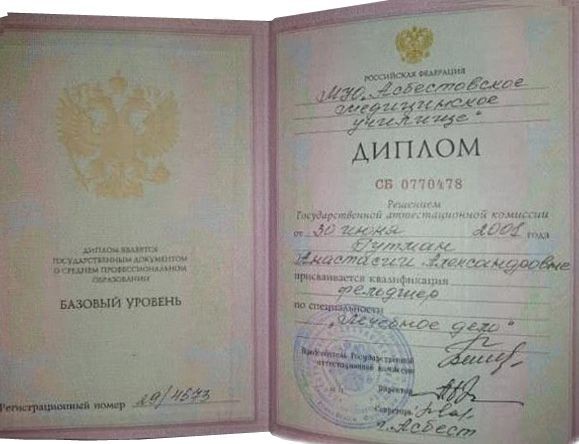 ДИПЛОМ ЯВЛЯЕТСЯ
ГОСУДАРСТВЕННЫМ ДОКУМЕНТОМ
О СРЕДНЕМ ПРОФЕССИОНАЛЬНОМ
ОБРАЗОВАНИИ
БАЗОВЫЙ УРОВЕНЬ
Регистрационный номер 29/4673
РОССИЙСКАЯ ФЕДЕРАЦИЯ
МУО „Асбестовское
медицинское
училище"
ДИПЛОМ
СБ 0770478
Решением
Государственной аттестационной комиссии
от 30 июня 2001 года
Гутман
Анастасии Александровне
присваивается квалификация
фельдшер
по специальности
„Лечебное дело"
Председатель Государственной
аттестационной комиссии
Директор
Секретарь
г. Асбест